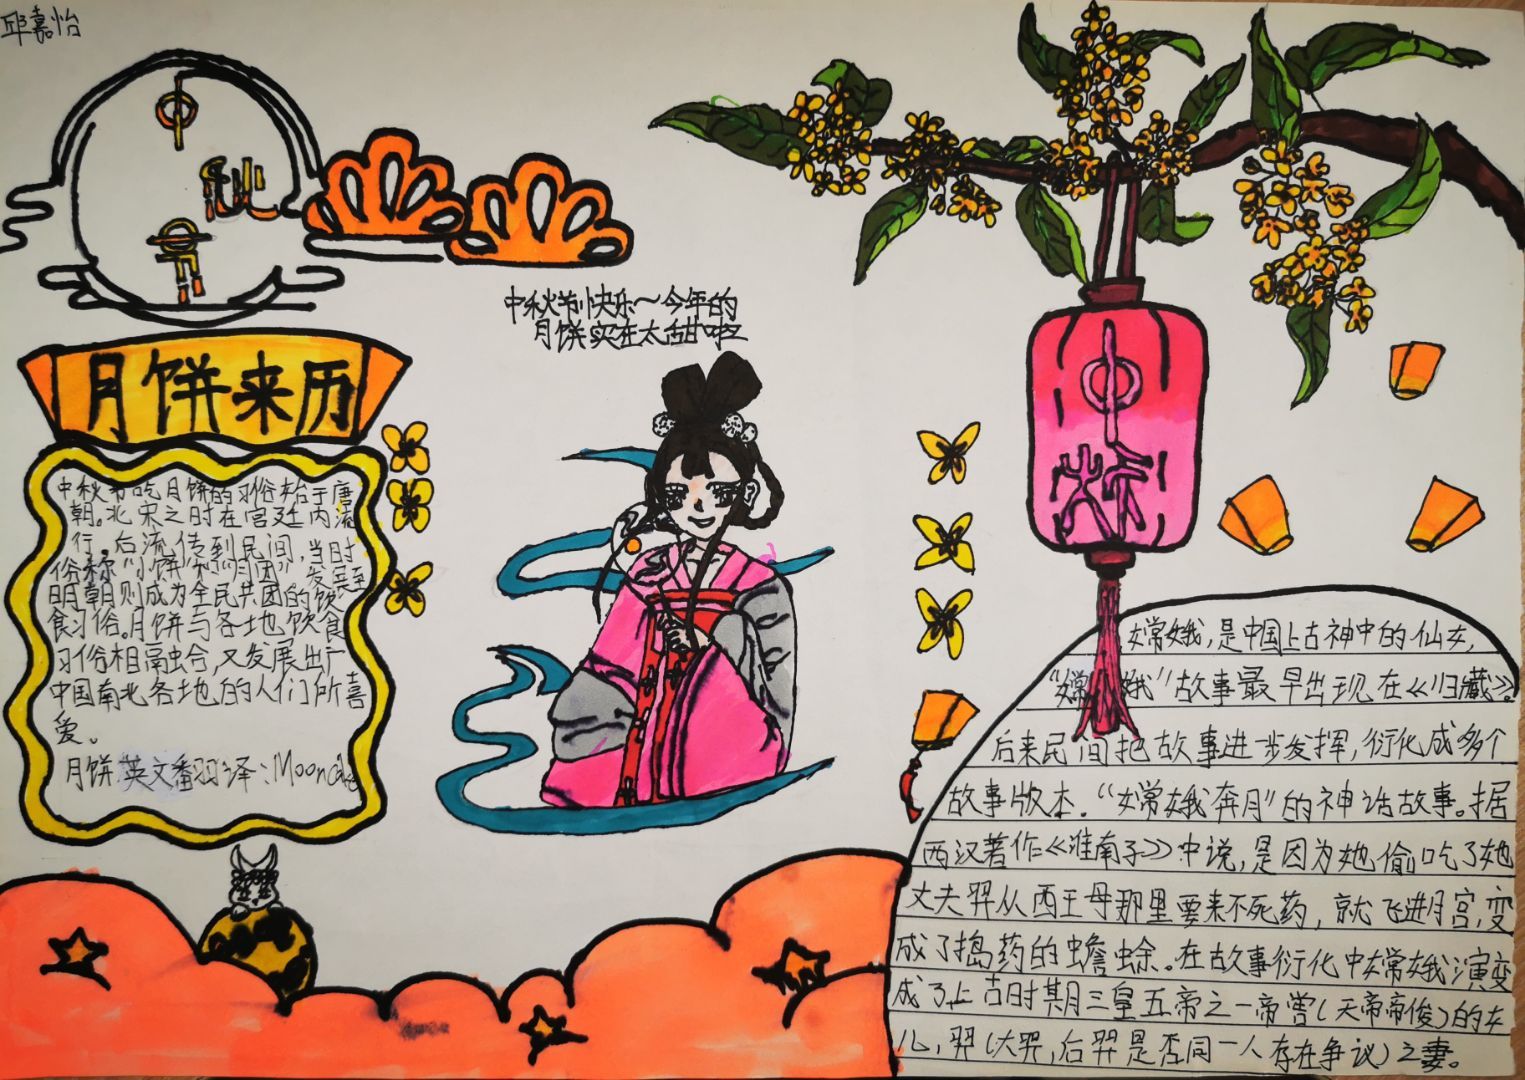 邱嘉怡
中
秋
节
中秋节快乐～今年的
月饼实在太甜啦
月饼来历
中秋节吃月饼的习俗始于唐
朝。北宋之时在宫廷内流
行。后流传到民间，当时
俗称"小饼"和"月团"。发展至
明朝则成为全民共团的饮
食习俗。月饼与各地饮食
习俗相融合，又发展出广
中国南北各地的人们所喜
爱。
月饼英文翻译：Mooncake
中
秋
嫦娥，是中国上古神中的仙女，
"嫦娥"故事最早出现在《归藏》。
后来民间把故事进步发挥，衍化成多个
故事版本．"嫦娥奔月"的神话故事。据
西汉著作《淮南子》中说，是因为她偷吃了她
丈夫羿从西王母那里要来不死药，就飞进月宫，变
成了捣药的蟾蜍。在故事衍化中嫦娥演变
成了上古时期三皇五帝之一帝喾（天帝帝俊）的女
儿，羿（大羿，后羿是否同一人存在争议）之妻。